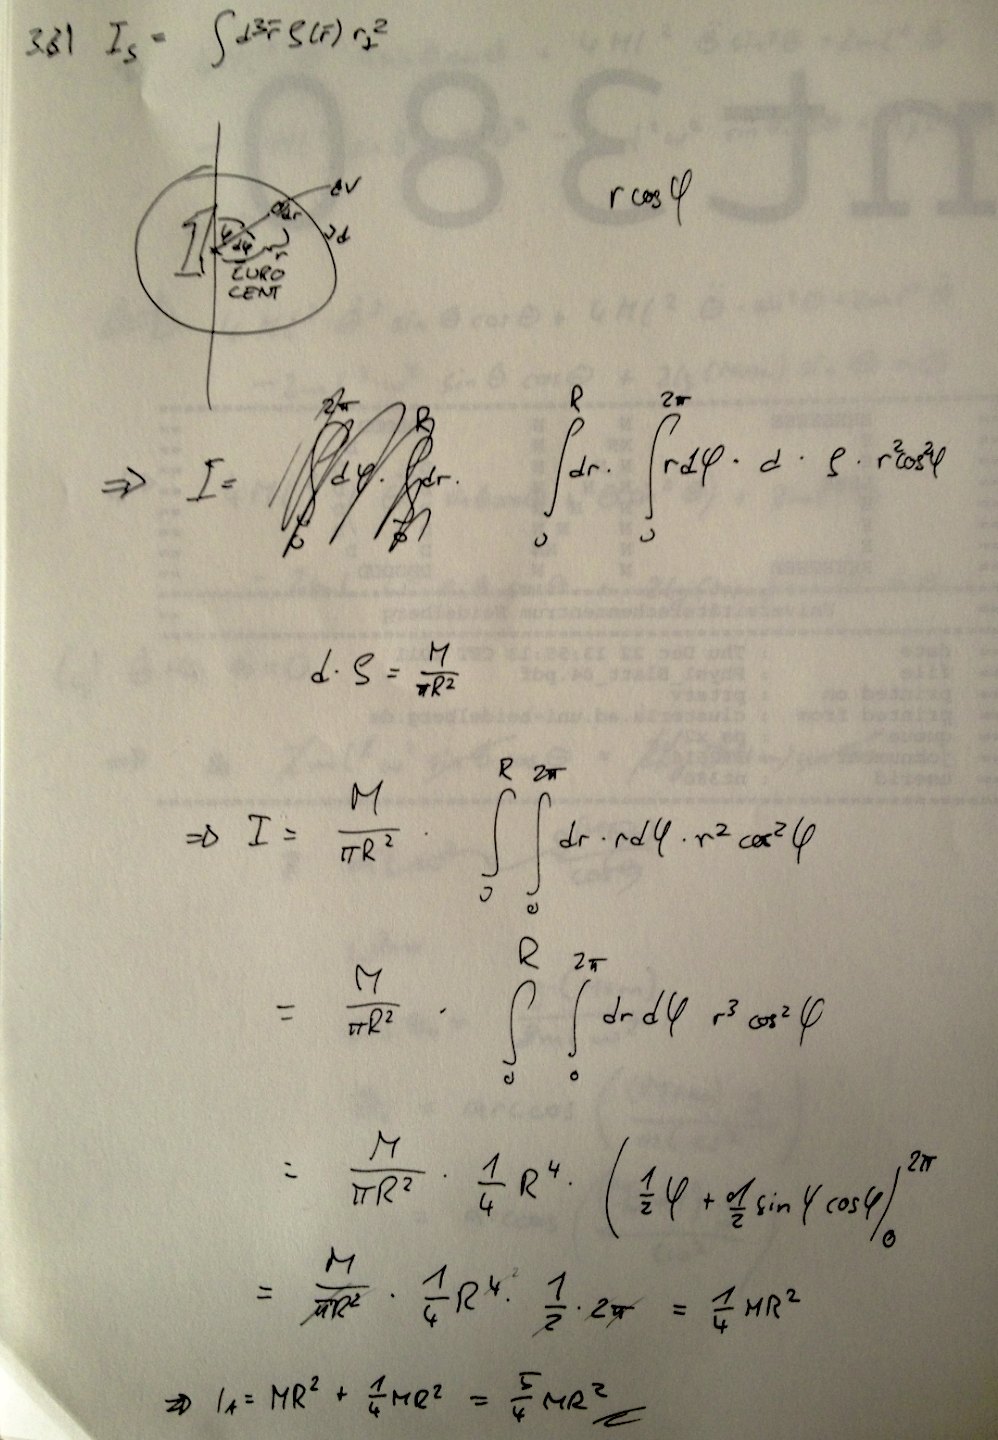 3.31 I_S = ∫ d³r̄ ρ(r̄) r_⊥²
dV
dr
r cos φ
φ
d
dφ
r
I
EURO
CENT
⇒ I = ∫_0^R dr · ∫_0^{2π} r dφ · d · ρ · r² cos² φ
d · ρ = M/(πR²)
⇒ I = M/(πR²) · ∫_0^R ∫_0^{2π} dr · r dφ · r² cos² φ
= M/(πR²) · ∫_0^R ∫_0^{2π} dr dφ r³ cos² φ
= M/(πR²) · 1/4 R⁴ · (1/2 φ + 1/2 sin φ cos φ)|_0^{2π}
= M/(πR²) · 1/4 R⁴ · 1/2 · 2π = 1/4 MR²
⇒ I_A = MR² + 1/4 MR² = 5/4 MR²